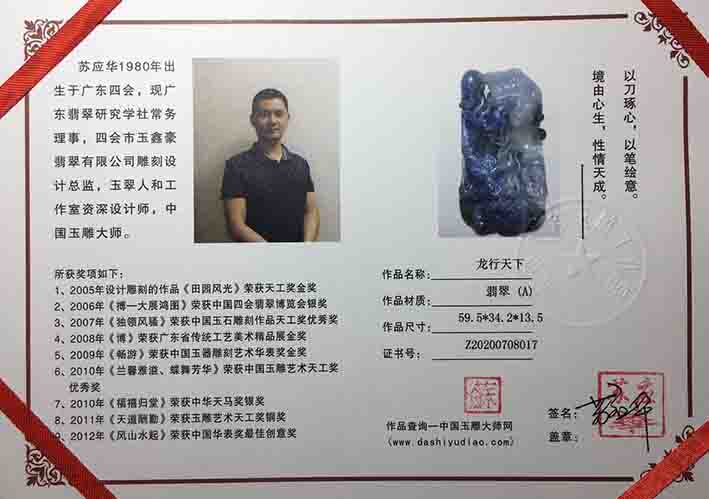 苏应华1980年出
生于广东四会，现广
东翡翠研究学社常务
理事，四会市玉鑫豪
翡翠有限公司雕刻设
计总监，玉翠人和工
作室资深设计师，中
国玉雕大师。
以刀琢心，以笔绘意。
境由心生，性情天成。
所获奖项如下：
1、2005年设计雕刻的作品《田园风光》荣获天工奖金奖
2、2006年《搏一大展鸿图》荣获中国四会翡翠博览会银奖
3、2007年《独领风骚》荣获中国玉石雕刻作品天工奖优秀奖
4、2008年《博》荣获广东省传统工艺美术精品展金奖
5、2009年《畅游》荣获中国玉器雕刻艺术华表奖金奖
6、2010年《兰馨雅溢、蝶舞芳华》荣获中国玉雕艺术天工奖
优秀奖
7、2010年《福禧归堂》荣获中华天马奖银奖
8、2011年《天道酬勤》荣获玉雕艺术天工奖铜奖
9、2012年《风山水起》荣获中国华表奖最佳创意奖
作品名称：龙行天下
作品材质：翡翠 (A)
作品尺寸：59.5*34.2*13.5
证书号：Z20200708017
作品查询一中国玉雕大师网
(www.dashiyudiao.com)
签名：苏应华
盖章：